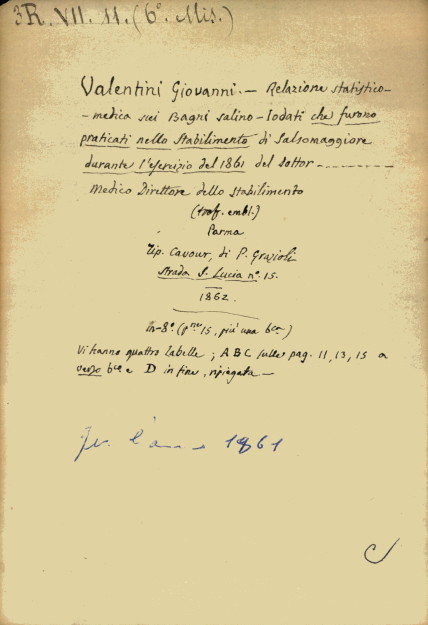 3R. VII. 11. (6°. Mis.)
Valentini Giovanni. — Relazione statistico-
-medica sui Bagni salino-Iodati che furono
praticati nello Stabilimento di Salsomaggiore
durante l'esercizio del 1861 del dottor ----------
Medico Direttore dello Stabilimento
(trof. embl.)
Parma
Tip. Cavour, di P. Grazioli
Strada S. Lucia n°. 15.
1862.
In-8° (pne 15, più una bca)
Vi hanno quattro tabelle; A B C sulle pag. 11, 13, 15 a
verso bca e D in fine, ripiegata —
1861